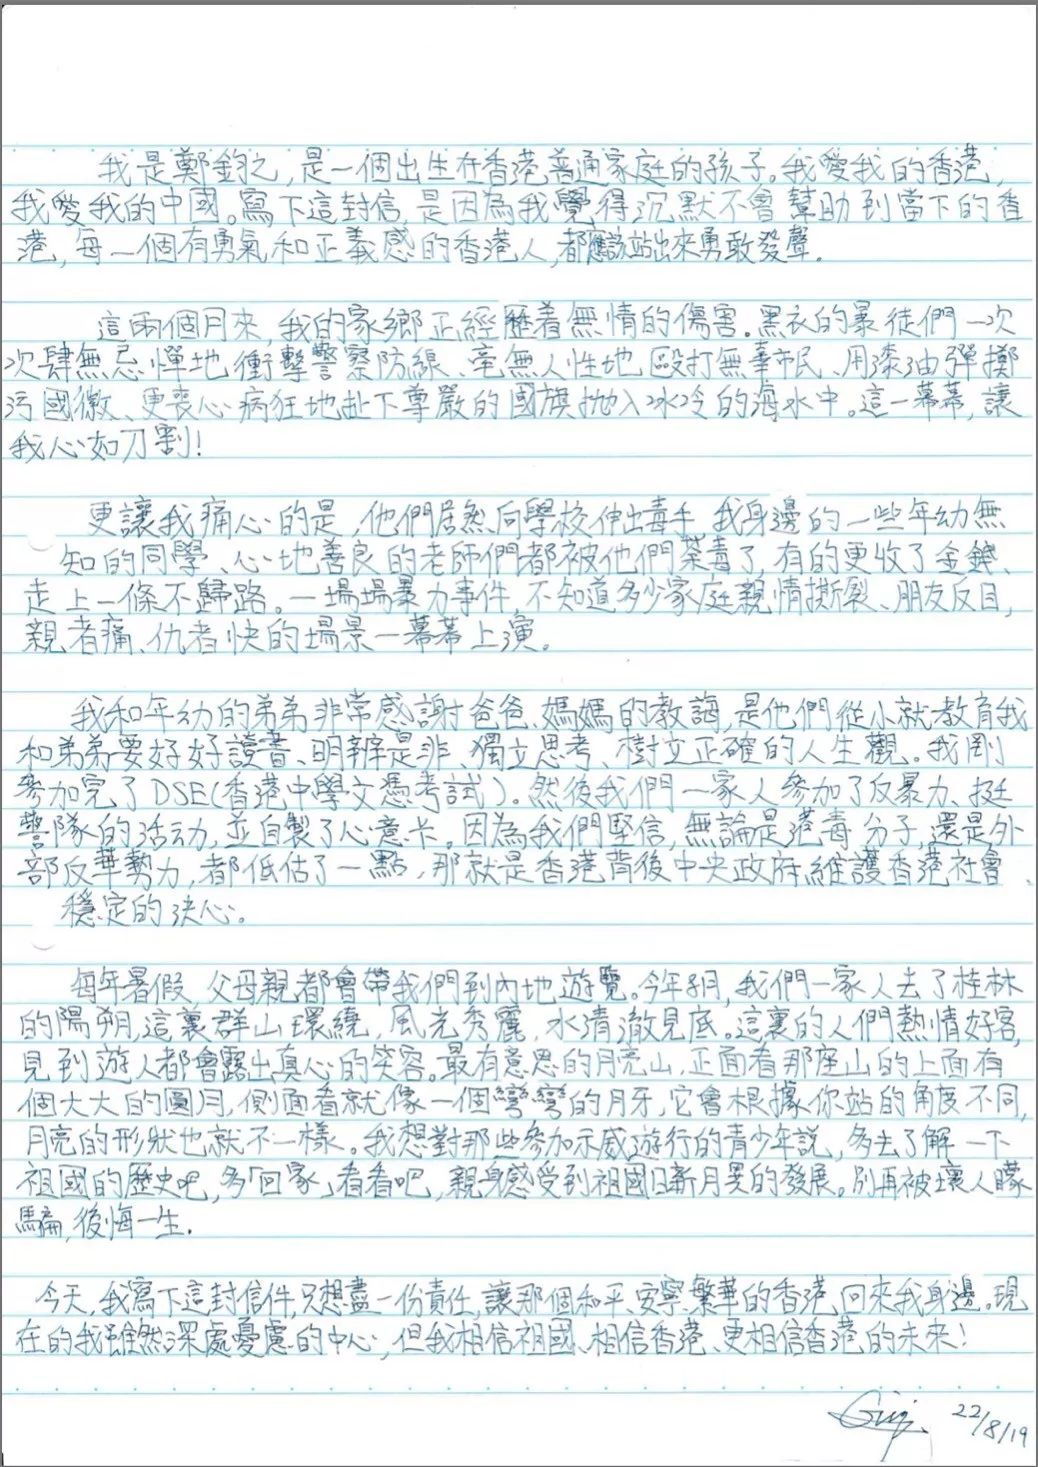 我是鄭鈞之,是一個出生在香港普通家庭的孩子。我愛我的香港,
我愛我的中國。寫下這封信,是因為我覺得沉默不會幫助到當下的香
港,每一個有勇氣和正義感的香港人,都應該站出來勇敢發聲。
這兩個月來,我的家鄉正經歷着無情的傷害。黑衣的暴徒們一次
次肆無忌憚地衝擊警察防線、毫無人性地毆打無辜市民、用漆油彈擲
污國徽、更喪心病狂地扯下尊嚴的國旗拋入冰冷的海水中。這一幕幕,讓
我心如刀割!
更讓我痛心的是,他們居然向學校伸出毒手,我身邊的一些年幼無
知的同學、心地善良的老師們都被他們荼毒了,有的更收了金錢、
走上一條不歸路。一場場暴力事件,不知道多少家庭親情撕裂、朋友反目,
親者痛、仇者快的場景一幕幕上演。
我和年幼的弟弟非常感謝爸爸、媽媽的教誨,是他們從小就教育我
和弟弟要好好讀書、明辨是非、獨立思考、樹立正確的人生觀。我剛
參加完了DSE(香港中學文憑考試)。然後我們一家人參加了反暴力、挺
警隊的活动,並自製了心意卡。因為我們堅信,無論是港毒分子,還是外
部反華勢力,都低估了一點,那就是香港背後中央政府維護香港社會、
穩定的決心。
每年暑假,父母親都會帶我們到內地遊覽。今年8月,我們一家人去了桂林
的陽朔,這裏群山環繞,風光秀麗,水清澈見底。這裏的人們熱情好客,
見到遊人都會露出真心的笑容。最有意思的月亮山,正面看那座山的上面有
個大大的圓月,側面看就像一個彎彎的月牙,它會根據你站的角度不同,
月亮的形狀也就不一樣。我想對那些參加示威遊行的青少年說,多去了解一下
祖國的歷史吧,多「回家」看看吧,親身感受到祖國日新月異的發展。別再被壞人矇
騙,後悔一生.
今天,我寫下這封信件,只想盡一份責任,讓那個和平、安寧、繁華的香港,回來我身邊。現
在的我雖然深處憂慮的中心,但我相信祖國、相信香港、更相信香港的未來!
22/8/19